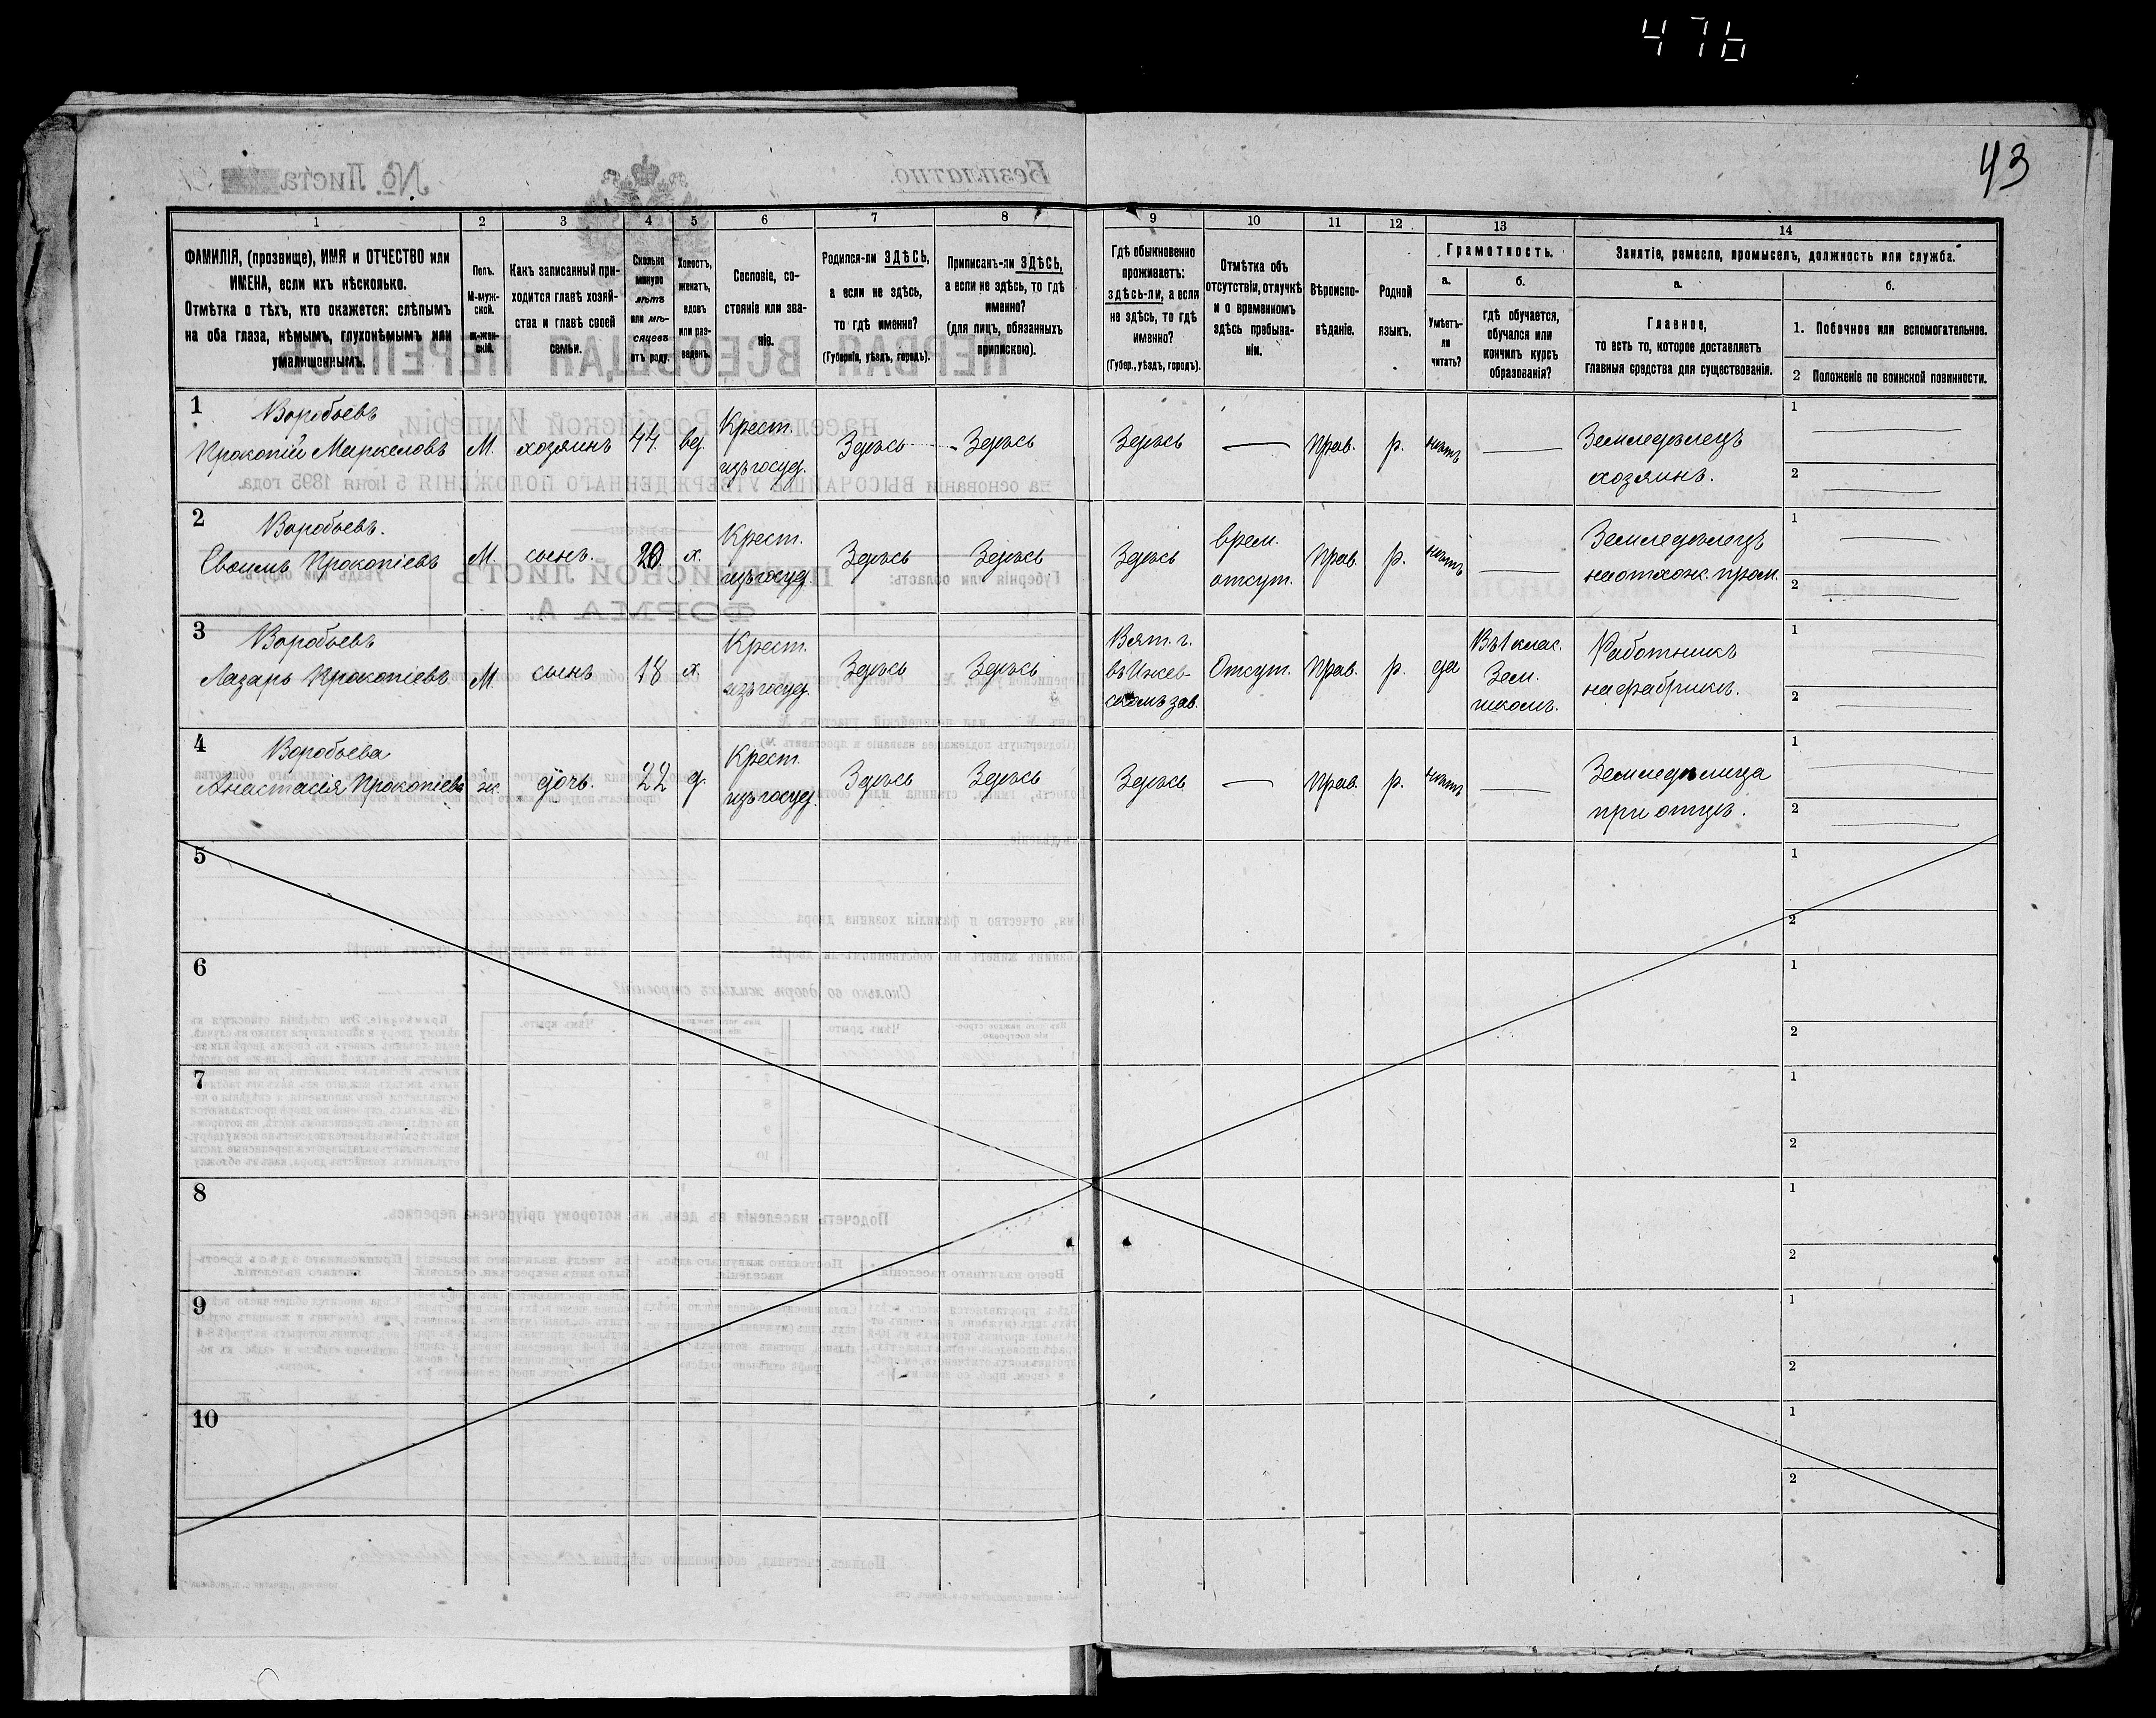 476
43
1
2
3
4
5
6
7
8
9
10
11
12
13
14
ФАМИЛІЯ, (прозвище), ИМЯ и ОТЧЕСТВО или
ИМЕНА, если ихъ нѣсколько.
Отмѣтка о тѣхъ, кто окажется: слѣпымъ
на оба глаза, нѣмымъ, глухонѣмымъ или
умалишеннымъ.
Полъ.
М-муж-
ской.
Ж-жен-
скій.
Какъ записанный при-
ходится главѣ хозяй-
ства и главѣ своей
семьи.
Сколько
минуло
лѣтъ
или мѣ-
сяцевъ
отъ роду.
Холостъ,
женатъ,
вдовъ
или раз-
веденъ.
Сословіе, со-
стояніе или зва-
ніе.
Родился-ли ЗДѢСЬ,
а если не здѣсь,
то гдѣ именно?
(Губернія, уѣздъ, городъ).
Приписанъ-ли ЗДѢСЬ,
а если не здѣсь, то гдѣ
именно?
(для лицъ, обязанныхъ
припискою).
Гдѣ обыкновенно
проживаетъ:
здѣсь-ли, а если
не здѣсь, то гдѣ
именно?
(Губер., уѣздъ, городъ).
Отмѣтка объ
отсутствіи, отлучкѣ
и о временномъ
здѣсь пребыва-
ніи.
Вѣроиспо-
вѣданіе.
Родной
языкъ.
Грамотность.
а.
Умѣетъ-
ли
читать?
б.
гдѣ обучается,
обучался или
кончилъ курсъ
образованія?
Занятіе, ремесло, промыселъ, должность или служба.
а.
Главное,
то есть то, которое доставляетъ
главныя средства для существованія.
б.
1. Побочное или вспомогательное.
2 Положеніе по воинской повинности.
1 Воробьевъ
Прокопій Маркеловъ М. хозяинъ 44. вд. Крест. изъ госуд. Здѣсь Здѣсь Здѣсь — прав. р. нѣтъ — Земледѣлецъ
хозяинъ.
1
2
2 Воробьевъ.
Прокопіевъ М. сынъ. 20 х. Крест. изъ госуд. Здѣсь Здѣсь Здѣсь врем. отсут. прав. р. нѣтъ — Земледѣлецъ
на отхож. пром.
1
2
3 Воробьевъ
Лазарь Прокопіевъ М. сынъ 18 х. Крест. изъ госуд. Здѣсь Здѣсь Вят. г. въ Ижев- скомъ зав. Отсут. прав. р. да Въ 1 клас. Зем. школѣ. Работникъ
на фабрикѣ.
1
2
4 Воробьева
Анастасія Прокопіева ж. дочь. 22 д. Крест. изъ госуд. Здѣсь Здѣсь Здѣсь — прав. р. нѣтъ — Земледѣлица
при отцѣ.
1
2
5
1
2
6
1
2
7
1
2
8
1
2
9
1
2
10
1
2